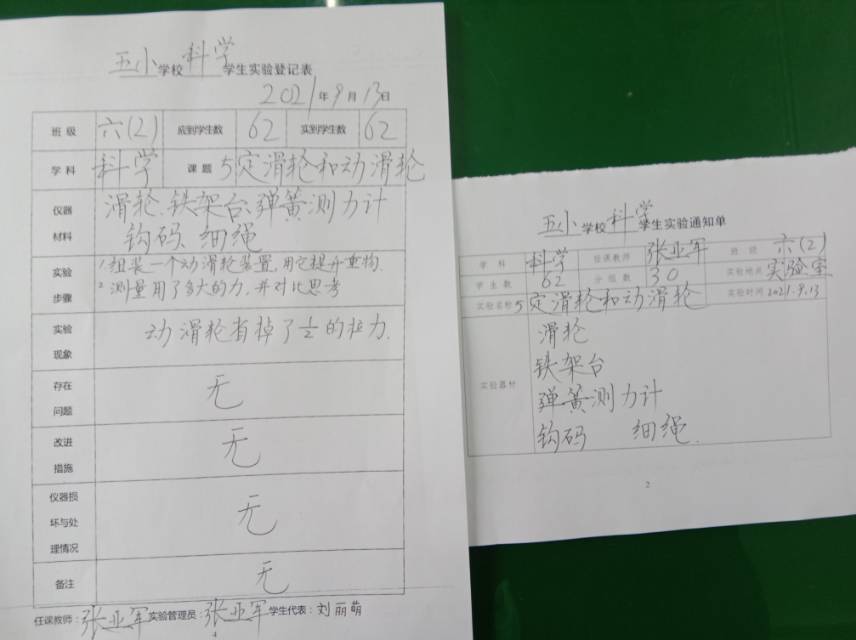 五小学校科学学生实验登记表
2021年9月13日
班级 六(2) 应到学生数 62 实到学生数 62
学科 科学 课题 5定滑轮和动滑轮
仪器材料 滑轮、铁架台、弹簧测力计
钩码、细绳
实验步骤 1.组装一个动滑轮装置,用它提升重物.
2.测量用了多大的力,并对比思考
实验现象 动滑轮省掉了1/2的拉力.
存在问题 无
改进措施 无
仪器损坏与处理情况 无
备注 无
任课教师:张亚军 实验管理员:张亚军 学生代表:刘丽萌
4
五小学校科学学生实验通知单
学科 科学 任课教师 张亚军 班级 六(2)
学生数 62 分组数 30 实验地点 实验室
实验名称 5定滑轮和动滑轮 实验时间 2021.9.13
实验器材 滑轮
铁架台
弹簧测力计
钩码 细绳.
2